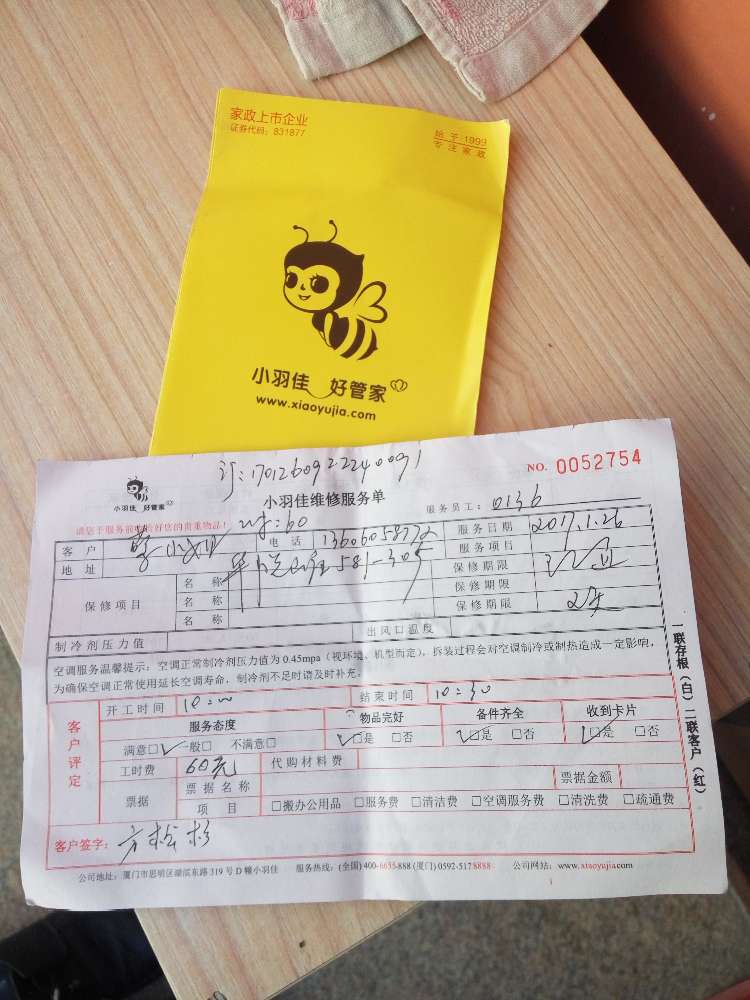 家政上市企业
证券代码：831877
始于1999
专注家政
小羽佳 好管家
www.xiaoyujia.com
订：1701260922240091
NO. 0052754
小羽佳 好管家
小羽佳维修服务单
服务员工：0136
请您于服务前收拾好您的贵重物品！
客户 小 电话 13606058772 服务日期 2017.1.26
地址 581-305 服务项目
保修项目 名称 保修期限
名称 保修期限
名称 保修期限
制冷剂压力值 出风口温度
空调服务温馨提示：空调正常制冷剂压力值为0.45mpa（视环境、机型而定），拆装过程会对空调制冷或制热造成一定影响，
为确保空调正常使用延长空调寿命，制冷剂不足时请及时补充。
开工时间 10:00 结束时间 10:30
客户评定
服务态度 物品完好 备件齐全 收到卡片
满意□ 一般□ 不满意□ □是 □否 □是 □否 □是 □否
工时费 60元 代购材料费
票据 票据名称 票据金额
项目 □搬办公用品 □服务费 □清洁费 □空调服务费 □清洗费 □疏通费
客户签字：方松杉
一联存根（白）二联客户（红）
公司地址：厦门市思明区湖滨东路319号D幢小羽佳 服务热线：(全国)400-6655-888 (厦门)0592-5178888 公司网站：www.xiaoyujia.com